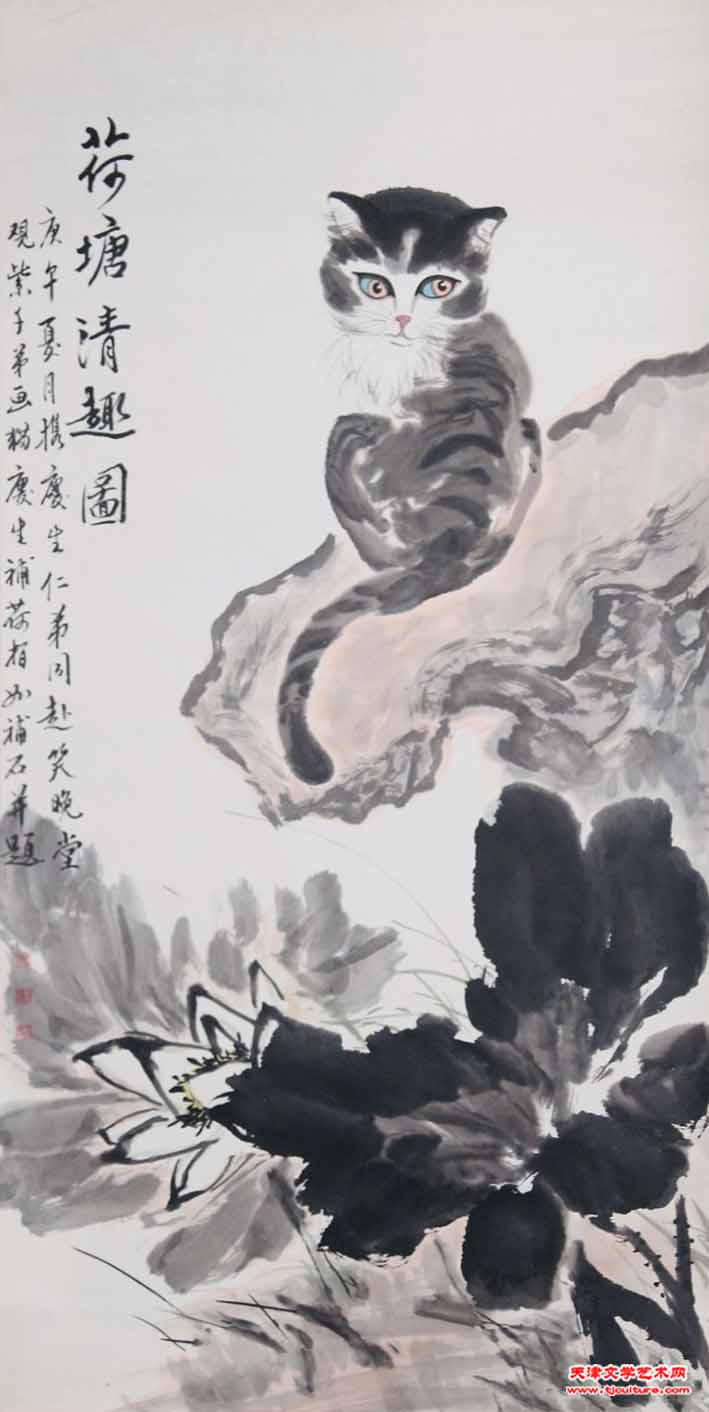 荷塘清趣图
庚午夏月携庆生仁弟同赴笑晚堂
观紫千弟画猫庆生补荷有如补石并题
天津文学艺术网
www.tjculture.com